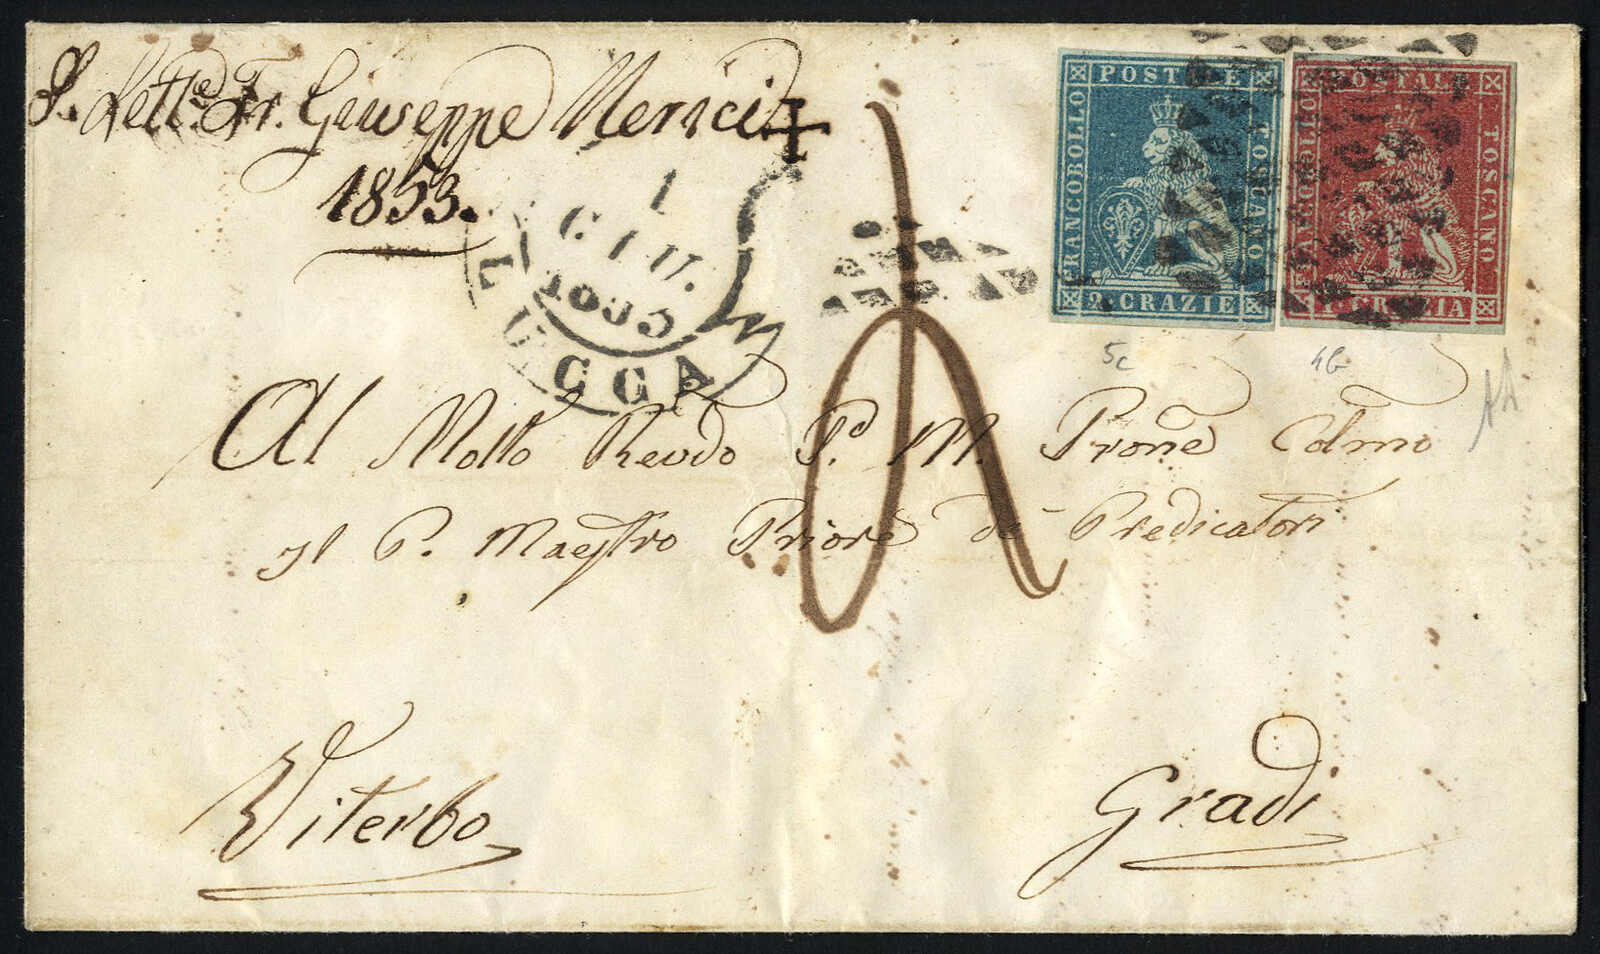 Lett.e Fr. Giuseppe Nerici
1853.
1
GIU.
1853
LUCCA
FRANCOBOLLO POSTALE TOSCANO
2 CRAZIE
FRANCOBOLLO POSTALE TOSCANO
1 CRAZIA
5c
4b
Al Molto Revdo P. M. Prone Colmo
Il P. Maestro Priore de' Predicatori
Viterbo
Gradi